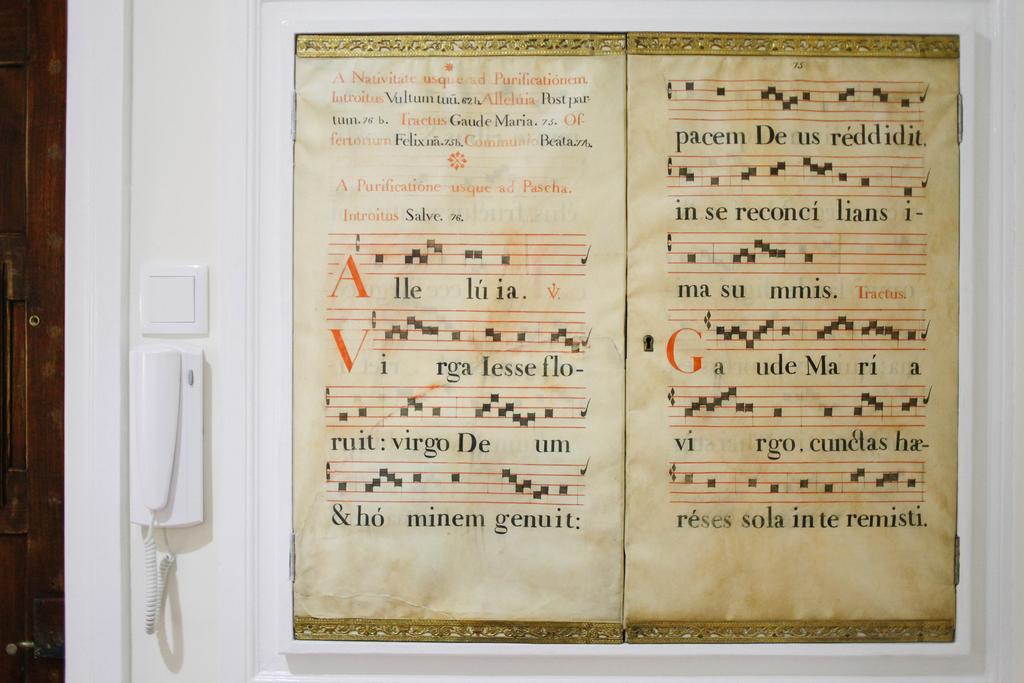 A Nativitate usque ad Purificationem.
Introitus Vultum tuū. 62 b. Allelúia Post par-
tum. 76 b. Tractus Gaude Maria. 75. Of-
fertorium Felix nā. 75 b. Communio Beata. 77 b.
A Purificatione usque ad Pascha.
Introitus Salve. 76.
Alle lú ia. ℣.
Vi rga Iesse flo-
ruit: virgo De um
& hó minem genuit:
75
pacem De us réddidit,
in se reconcí lians i-
ma su mmis. Tractus.
Ga ude Ma rí a
vi rgo, cunctas hæ-
réses sola in te remisti.